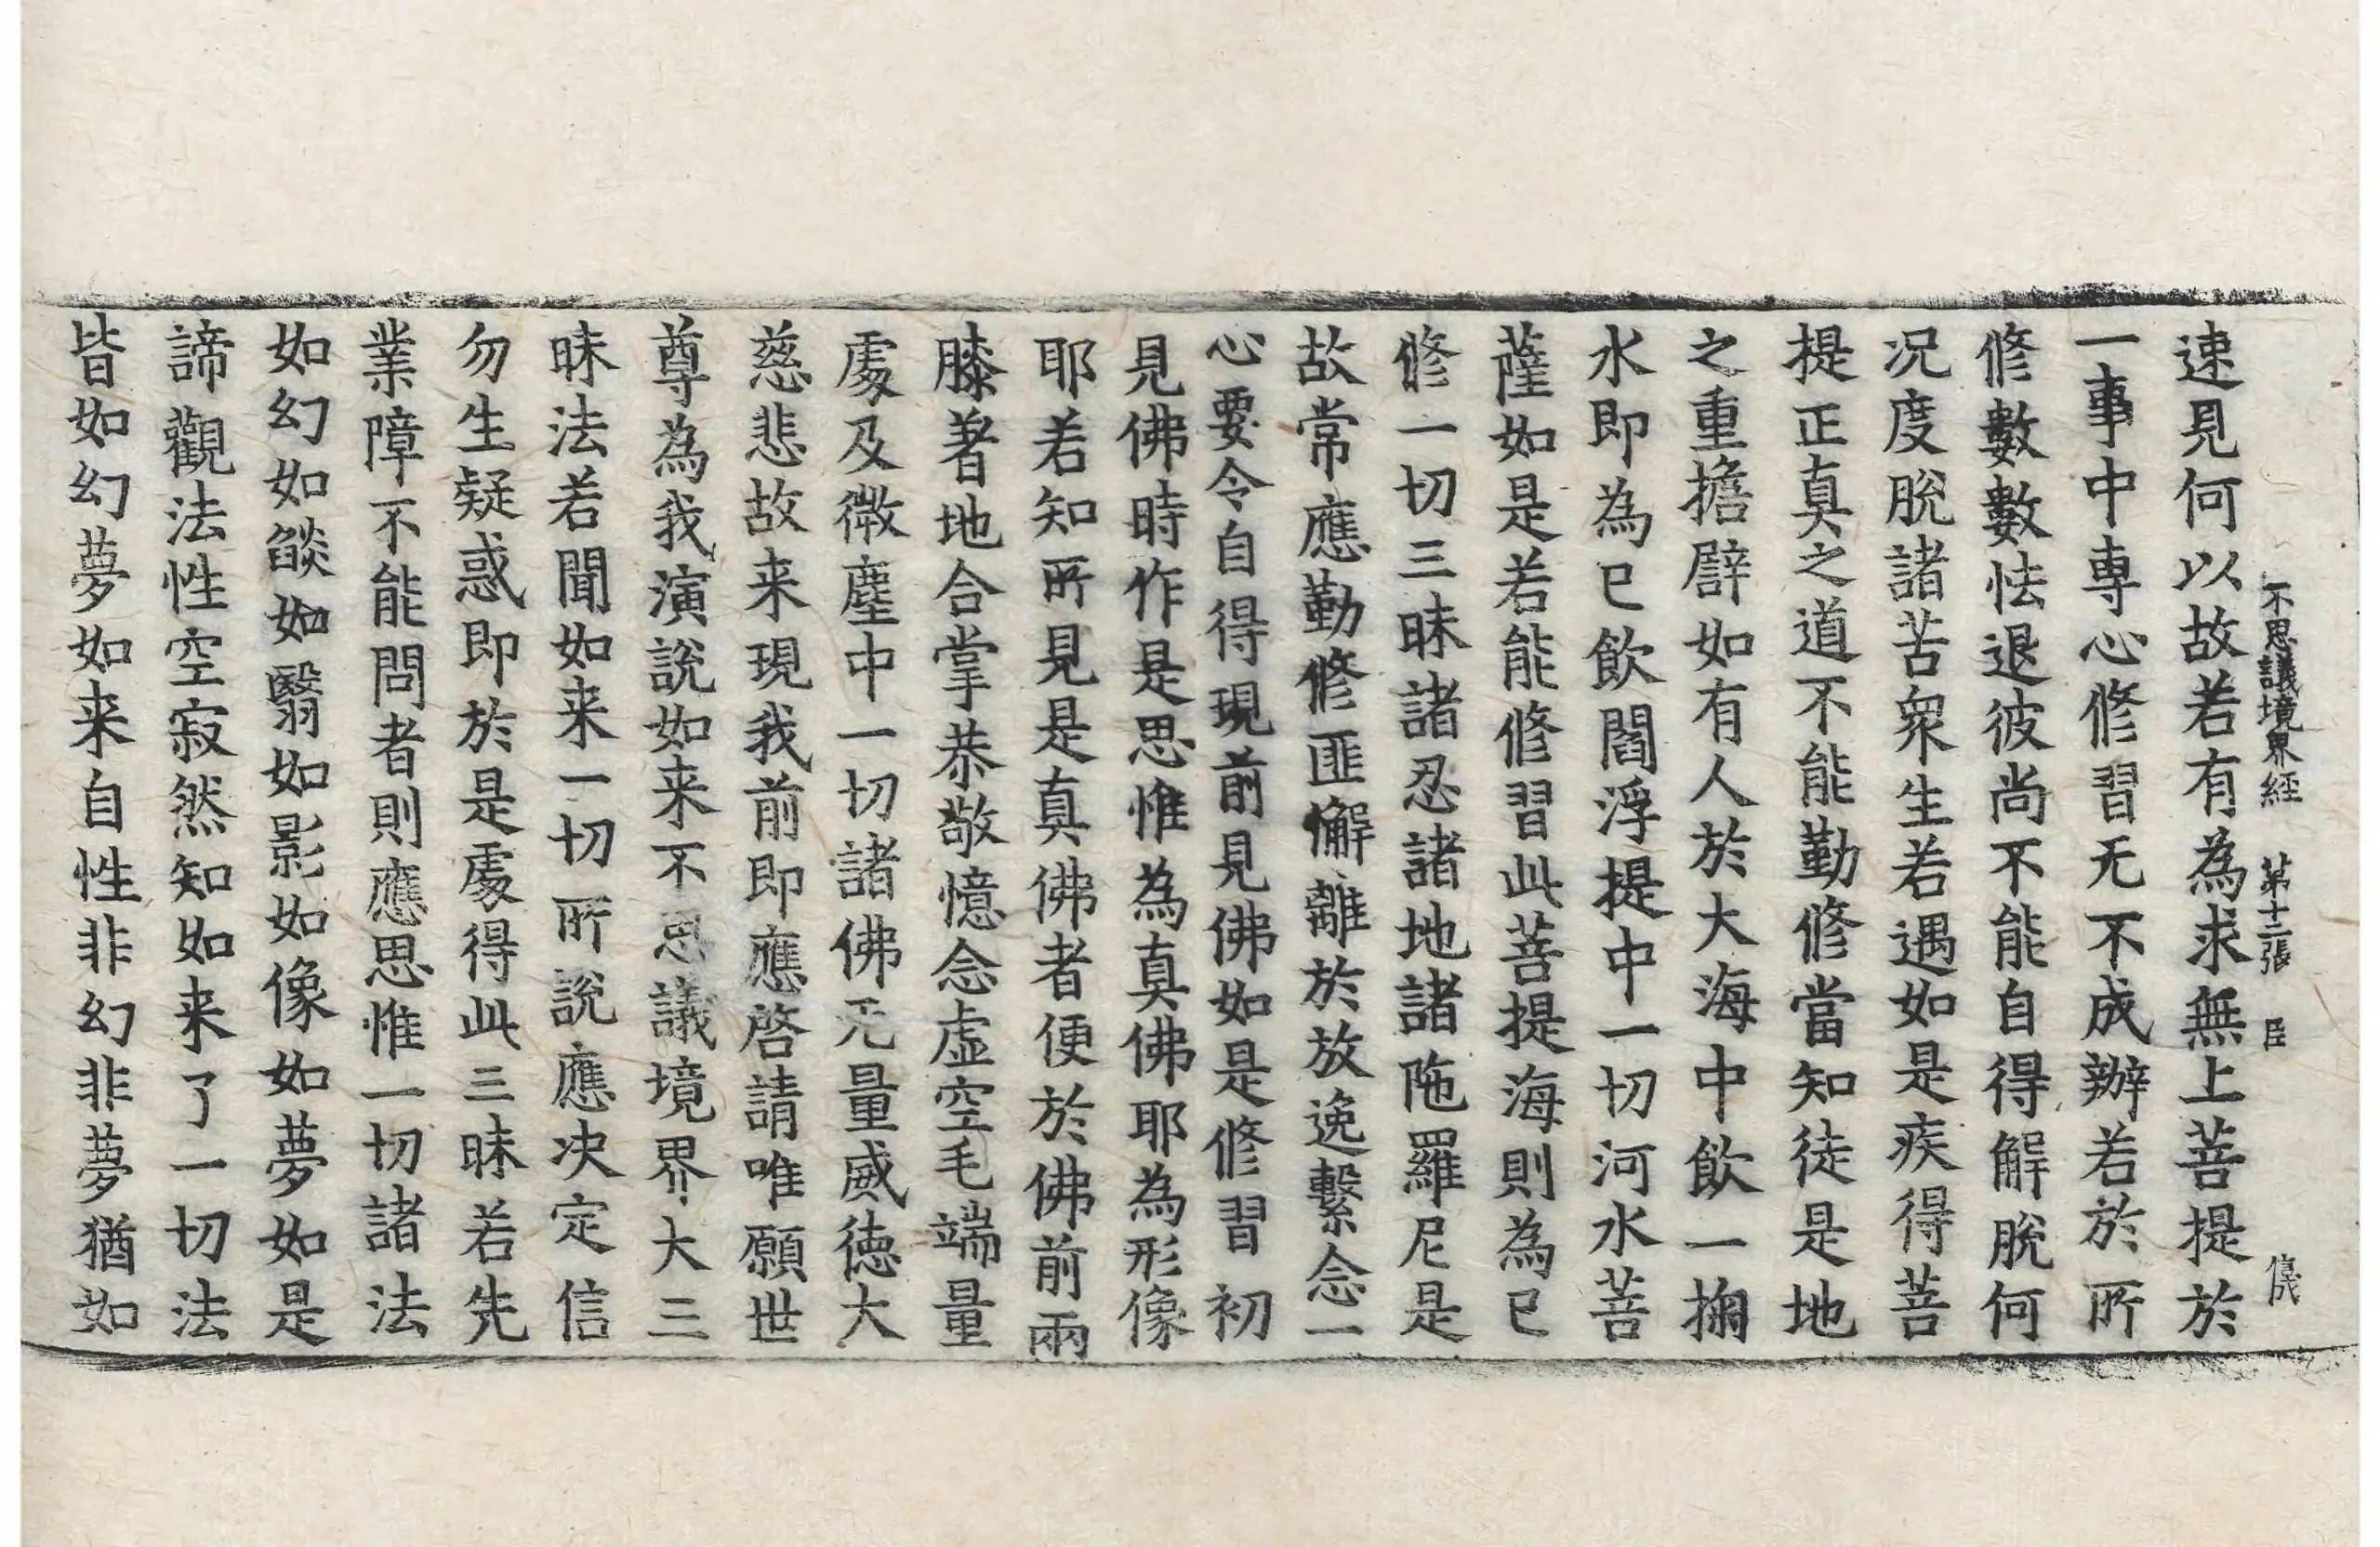 不思議境界經 第十二張 臣
速見何以故若有為求無上菩提於
一事中專心修習无不成辦若於所
修數數怯退彼尚不能自得解脫何
況度脫諸苦衆生若遇如是疾得菩
提正真之道不能勤修當知徒是地
之重擔譬如有人於大海中飲一掬
水即為已飲閻浮提中一切河水菩
薩如是若能修習此菩提海則為已
修一切三昧諸忍諸地諸陁羅尼是
故常應勤修匪懈離於放逸繫念一
心要令自得現前見佛如是修習初
見佛時作是思惟為真佛耶為形像
耶若知所見是真佛者便於佛前兩
膝著地合掌恭敬憶念虛空毛端量
處及微塵中一切諸佛无量威德大
慈悲故来現我前即應啓請唯願世
尊為我演說如来不思議境界大三
昧法若聞如来一切所說應决定信
勿生疑惑即於是處得此三昧若先
業障不能問者則應思惟一切諸法
如幻如燄如翳如影如像如夢如是
諦觀法性空寂然知如来了一切法
皆如幻夢如来自性非幻非夢猶如